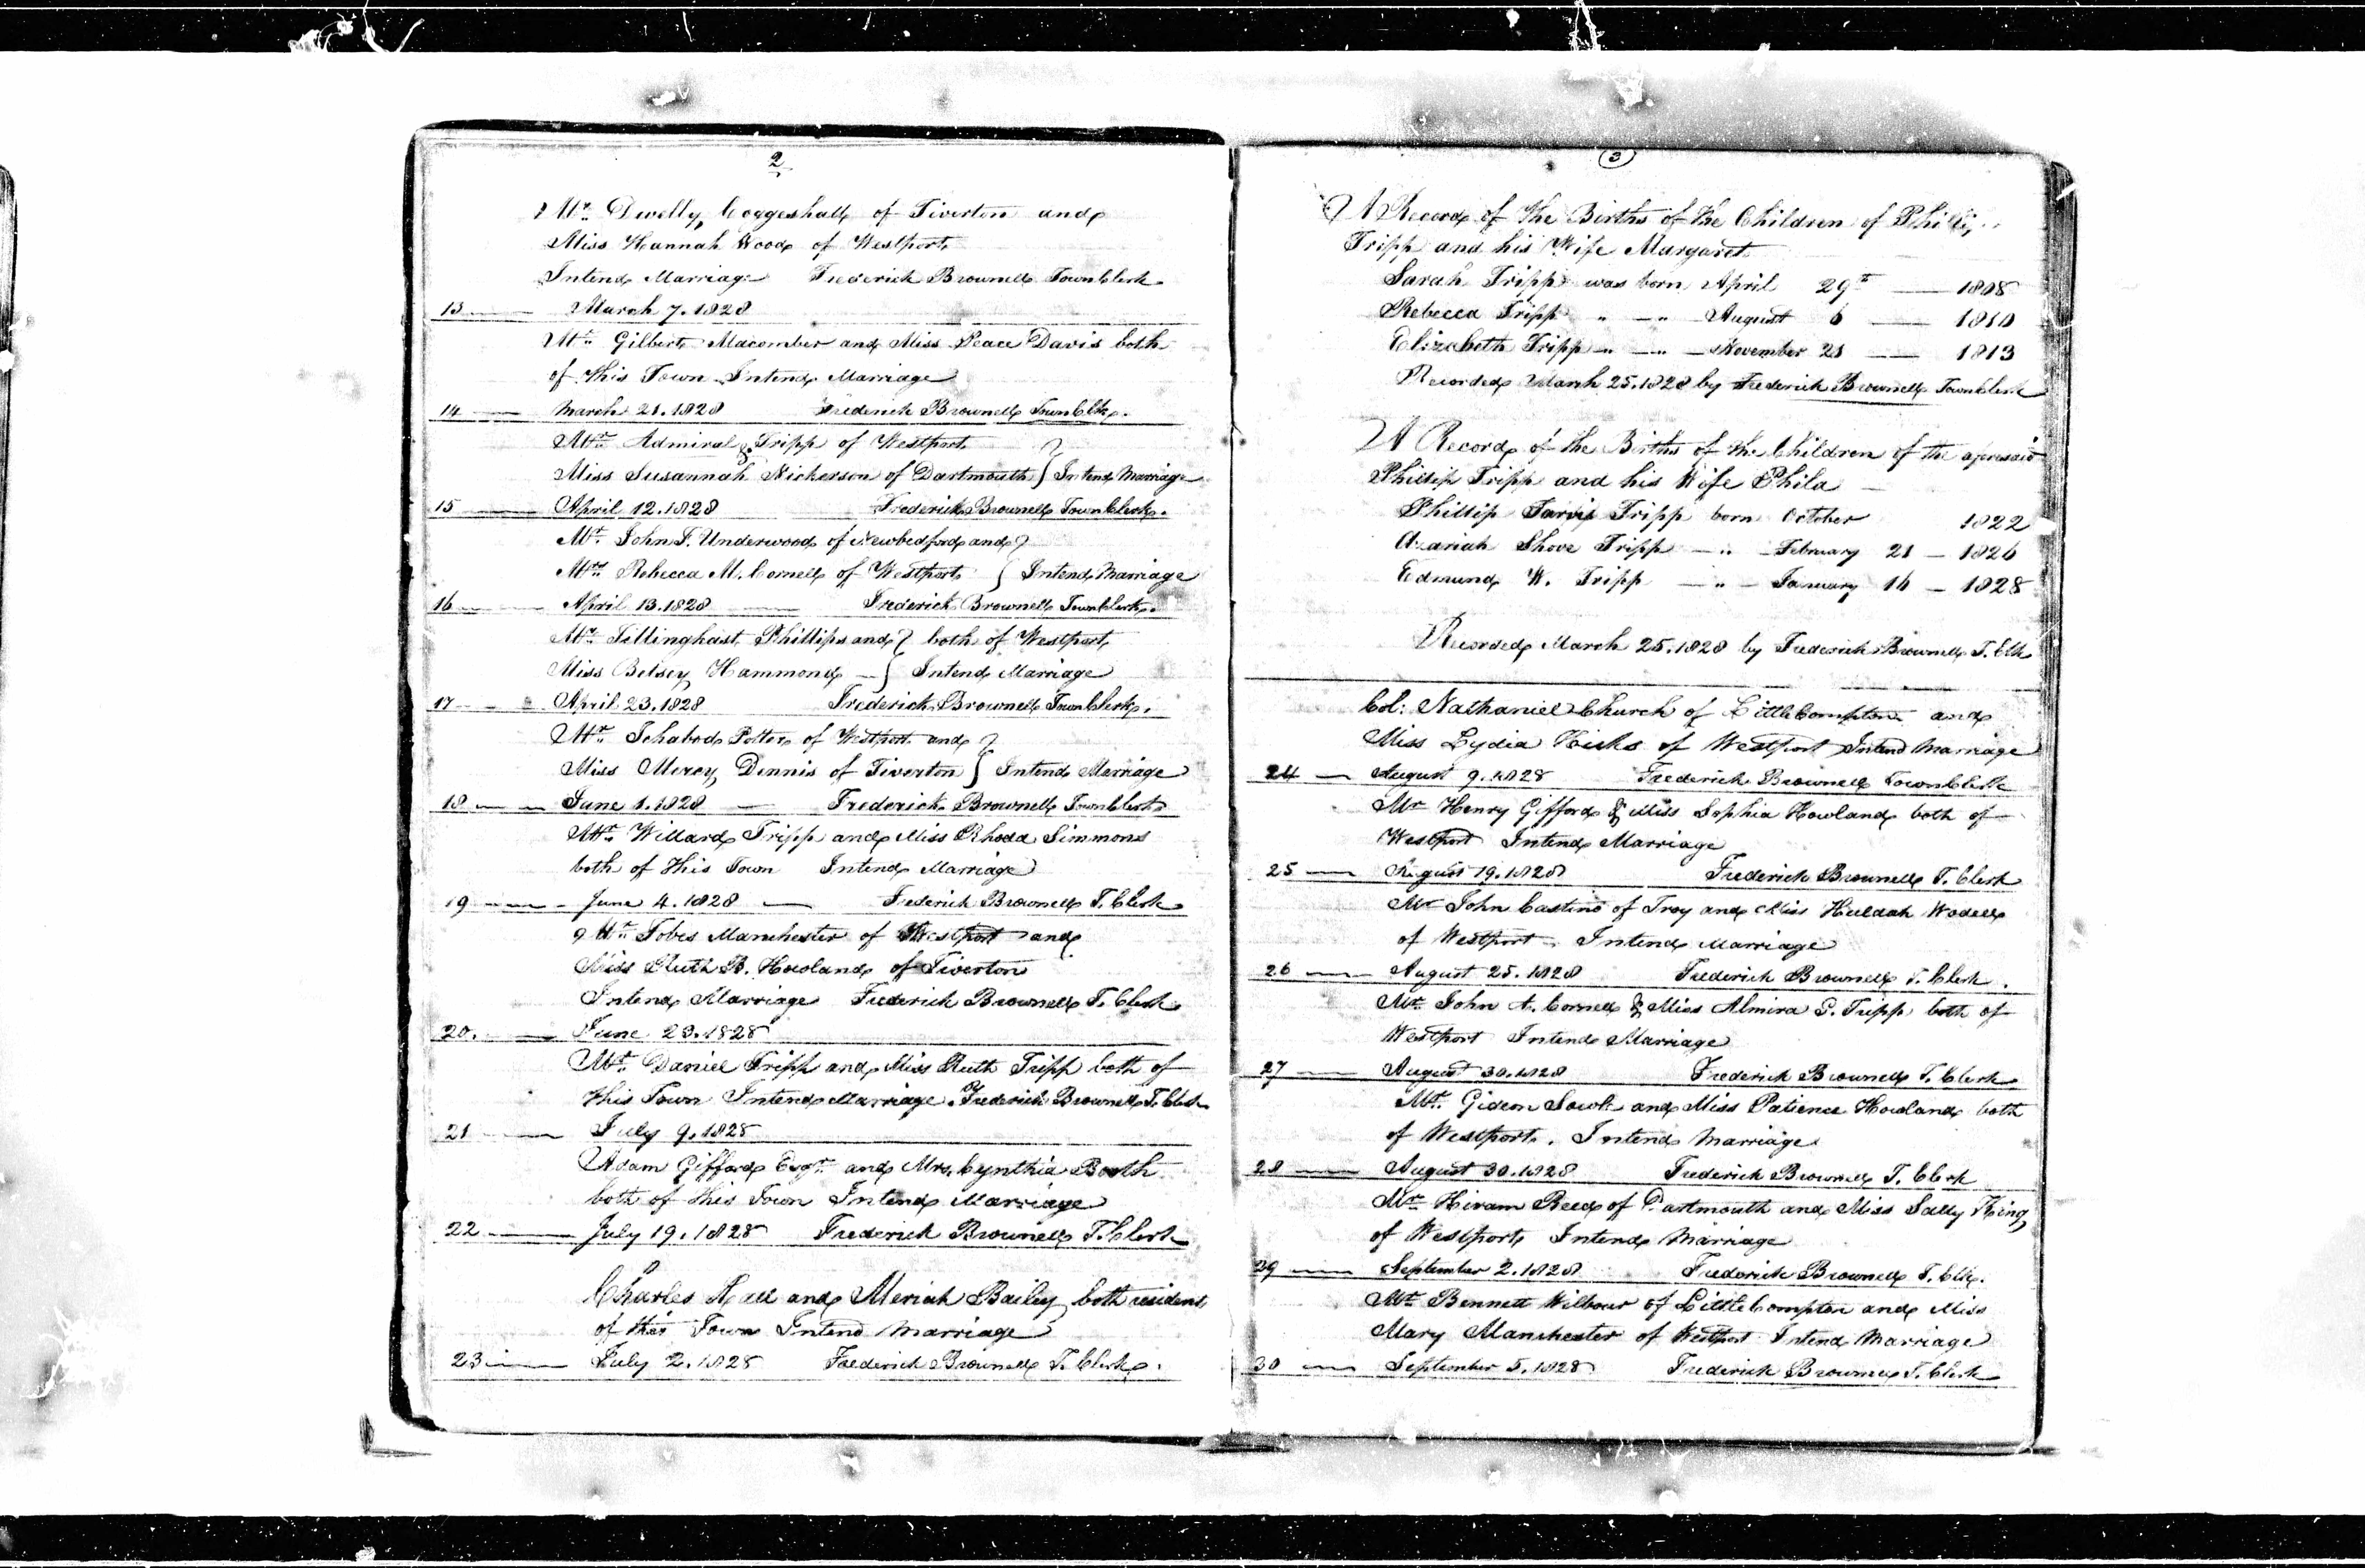 2
Mr. Dwelly Coggeshall of Tiverton and
Miss Hannah Wood of Westport
Intend Marriage Frederick Brownell Town Clerk
13 March 7. 1828
Mr. Gilbert Macomber and Miss Peace Davis both
of this Town Intend Marriage
14 March 21. 1828 Frederick Brownell Town Clk.
Mr. Admiral Tripp of Westport &
Miss Susannah Nickerson of Dartmouth } Intend Marriage
15 April 12. 1828 Frederick Brownell Town Clerk.
Mr. John T. Underwood of Newbedford and }
Mrs. Rebecca M. Cornell of Westport } Intend Marriage
16 April 13. 1828 Frederick Brownell Town Clerk.
Mr. Tillinghast Phillips and } both of Westport
Miss Betsey Hammond } Intend Marriage
17 April 23. 1828 Frederick Brownell Town Clerk.
Mr. Ichabod Potter of Westport and }
Miss Mercy Dennis of Tiverton } Intend Marriage
18 June 1. 1828 Frederick Brownell Town Clerk
Mr. Willard Tripp and Miss Rhoda Simmons
both of this Town Intend Marriage
19 June 4. 1828 Frederick Brownell T. Clerk
Mr. Jobes Manchester of Westport and
Miss Ruth B. Howland of Tiverton
Intend Marriage Frederick Brownell T. Clerk
20. June 23. 1828
Mr. Daniel Tripp and Miss Ruth Tripp both of
this Town Intend Marriage. Frederick Brownell T. Clerk
21 July 9. 1828
Adam Gifford Esqr. and Mrs. Cynthia Booth
both of this Town Intend Marriage
22 July 19. 1828 Frederick Brownell T. Clerk
Charles Hall and Meriah Bailey both resident
of this Town Intend Marriage
23 July 2. 1828 Frederick Brownell T. Clerk.
3
A Record of the Births of the Children of
Tripp and his Wife Margaret
Sarah Tripp was born April 29th 1808
Rebecca Tripp " — " August 6 1810
Elizabeth Tripp " — " November 21 1813
Recorded March 25. 1828 by Frederick Brownell Town Clerk
A Record of the Births of the Children of the aforesaid
Phillip Tripp and his Wife Phila
Phillip Jarvis Tripp born October 1822
Azariah Shove Tripp — " — February 21 — 1826
Edmund W. Tripp — " — January 16 — 1828
Recorded March 25. 1828 by Frederick Brownell T. Clk
Col: Nathaniel Church of Little Compton and
Miss Lydia Hicks of Westport Intend Marriage
24 August 9. 1828 Frederick Brownell Town Clerk
Mr Henry Gifford & Miss Sophia Howland both of
Westport Intend Marriage
25 August 19. 1828 Frederick Brownell T. Clerk
Mr John Castino of Troy and Miss Huldah Wodell
of Westport. Intend Marriage
26 August 25. 1828 Frederick Brownell T. Clerk.
Mr. John A. Cornell & Miss Almira G. Tripp both of
Westport Intend Marriage
27 August 30. 1828 Frederick Brownell T. Clerk
Mr. Gideon Sowle and Miss Patience Howland both
of Westport. Intend Marriage
28 August 30. 1828 Frederick Brownell T. Clerk
Mr. Hiram Reed of Dartmouth and Miss Sally King
of Westport Intend Marriage
29 September 2. 1828 Frederick Brownell T. Clk.
Mr. Bennett Wilbour of Little Compton and Miss
Mary Manchester of Westport Intend Marriage
30 September 5. 1828 Frederick Brownell T. Clerk